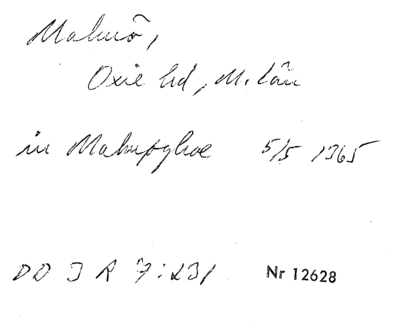 Malmö,
Oxie hd, M. län
in Malmøghæ 5/5 1365
DD 3 R 7:231 Nr 12628